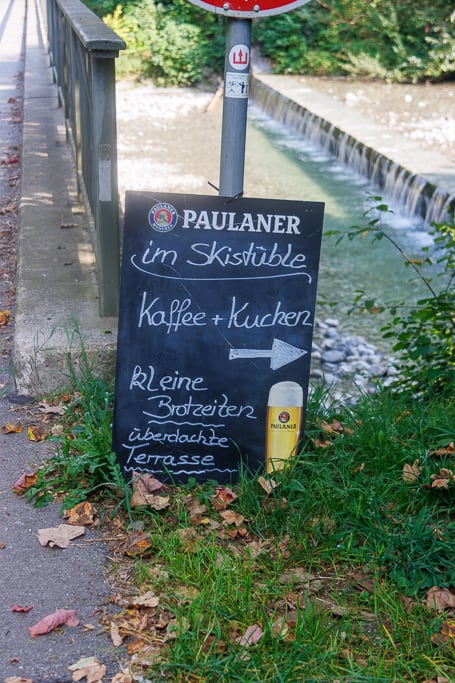 PAULANER
im Skistüble
Kaffee + Kuchen
kleine
Brotzeiten
überdachte
Terrasse
PAULANER